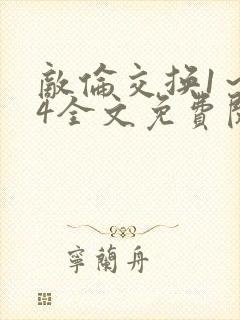 敵倫交换1～
4全文免費閱
寧蘭舟